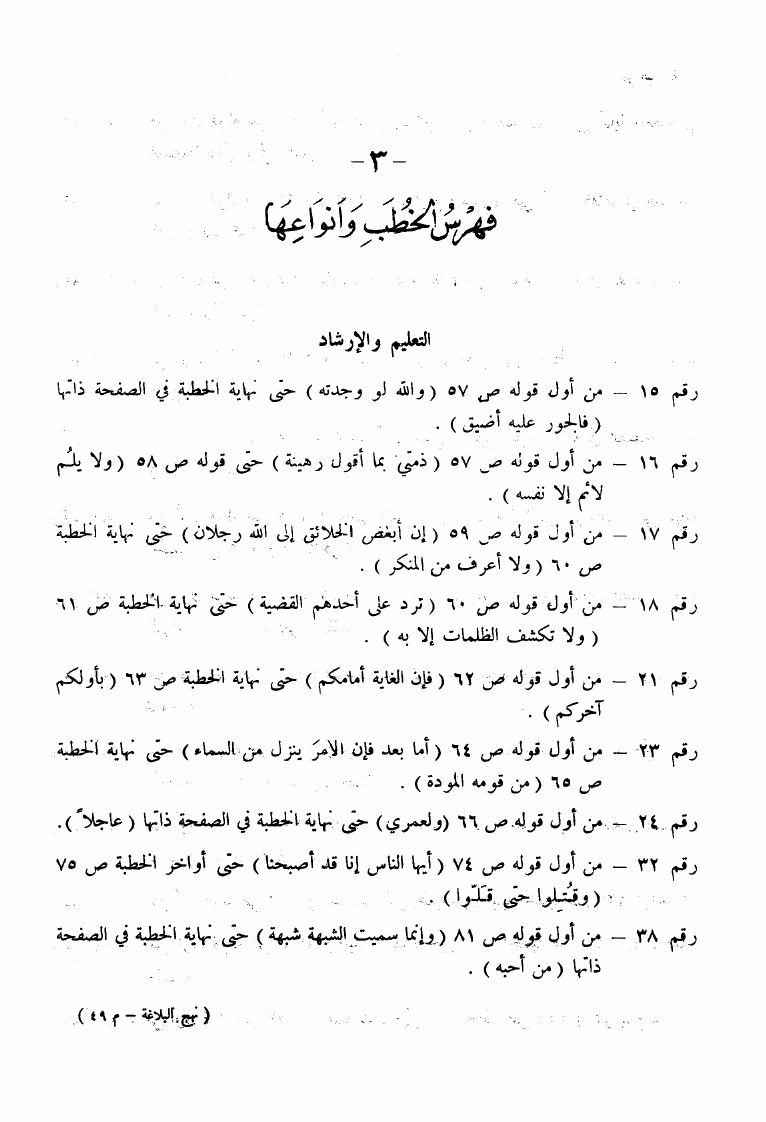 - ٣ -
فِهْرِسُ الخُطَبِ وَأَنوَاعِهَا
التعليم والإرشاد
رقم ١٥ — من أول قوله ص ٥٧ ( والله لو وجدته ) حتى نهاية الخطبة في الصفحة ذاتها
( فالجور عليه أضيق ) .
رقم ١٦ — من أول قوله ص ٥٧ ( ذمتي بما أقول رهينة ) حتى قوله ص ٥٨ ( ولا يلُم
لائم إلا نفسه ) .
رقم ١٧ — من أول قوله ص ٥٩ ( إن أبغض الخلائق إلى الله رجلان ) حتى نهاية الخطبة
ص ٦٠ ( ولا أعرف من المنكر ) .
رقم ١٨ — من أول قوله ص ٦٠ ( ترد على أحدهم القضية ) حتى نهاية الخطبة ص ٦١
( ولا تكشف الظلمات إلا به ) .
رقم ٢١ — من أول قوله ص ٦٢ ( فإن الغاية أمامكم ) حتى نهاية الخطبة ص ٦٣ ( بأولكم
آخركم ) .
رقم ٢٣ — من أول قوله ص ٦٤ ( أما بعد فإن الأمرَ ينزل من السماء ) حتى نهاية الخطبة
ص ٦٥ ( من قومه المودة ) .
رقم ٢٤ — من أول قوله ص ٦٦ ( ولعمري ) حتى نهاية الخطبة في الصفحة ذاتها ( عاجلاً ) .
رقم ٣٢ — من أول قوله ص ٧٤ ( أيها الناس إنا قد أصبحنا ) حتى أواخر الخطبة ص ٧٥
( وقُتِلوا حتى قَلّوا ) .
رقم ٣٨ — من أول قوله ص ٨١ ( وإنما سميت الشبهة شبهة ) حتى نهاية الخطبة في الصفحة
ذاتها ( من أحبه ) .
( نهج البلاغة – م ٤٩ )